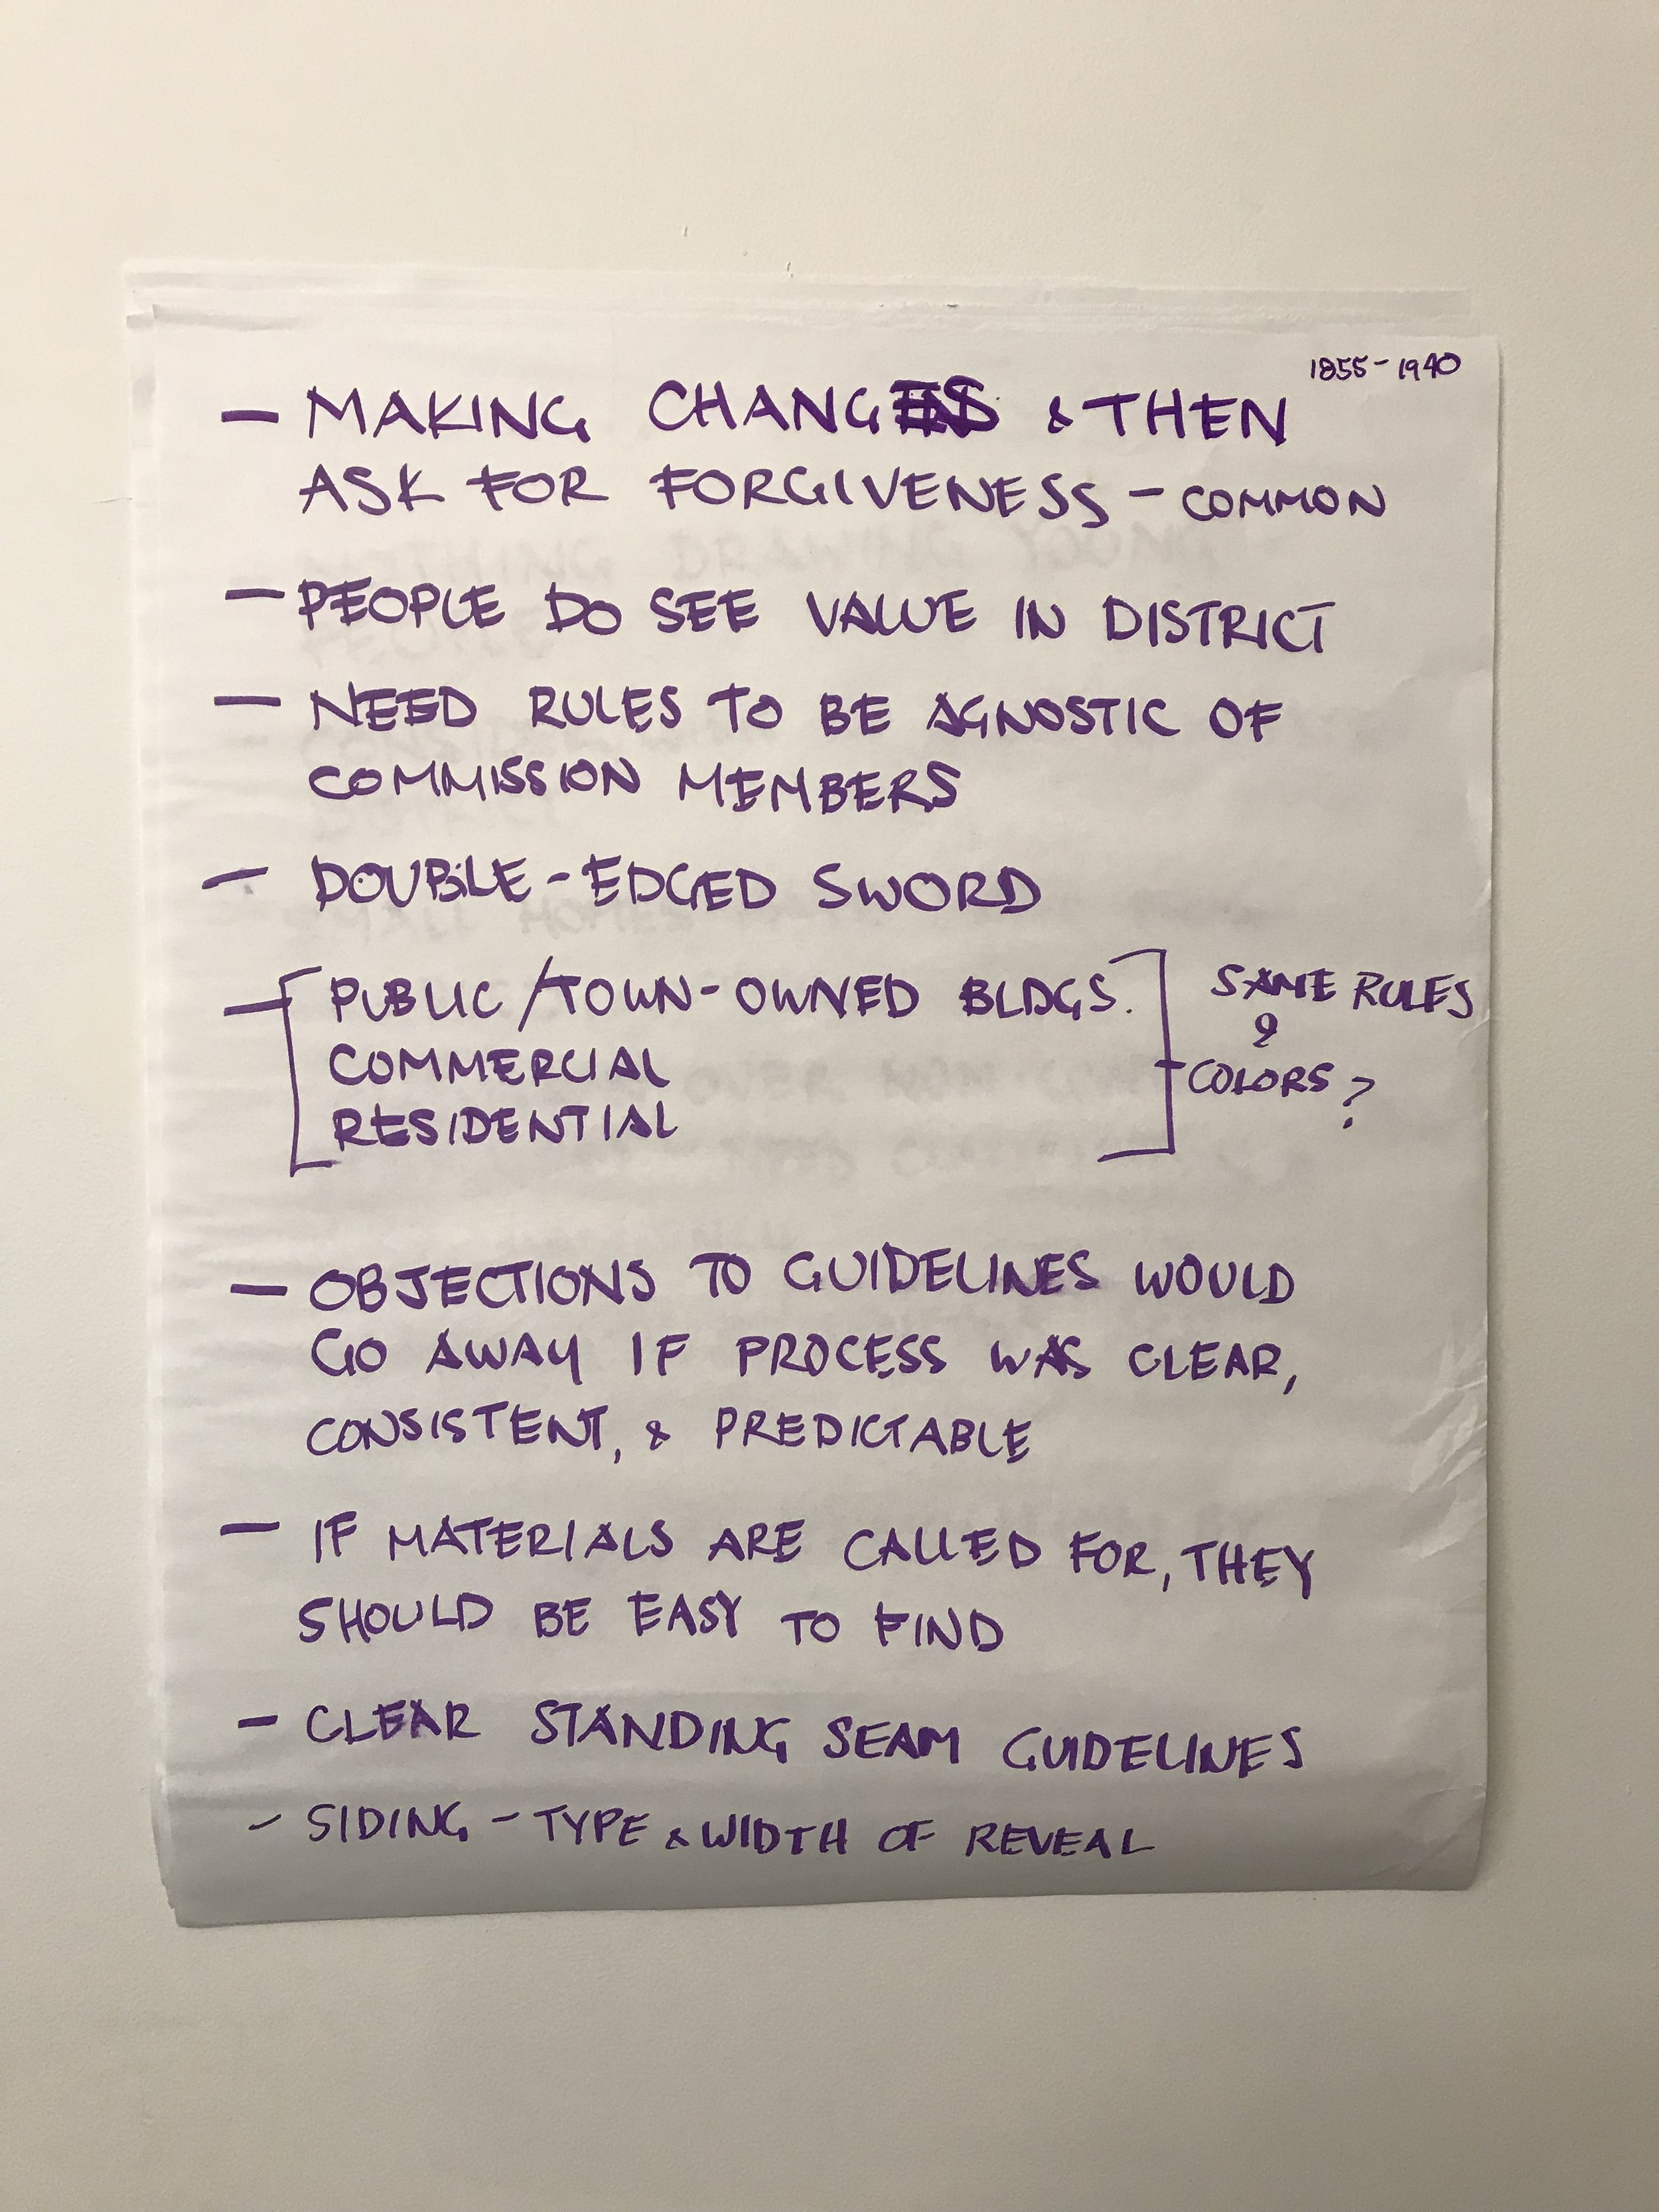 1855-1940
- MAKING CHANGES & THEN
ASK FOR FORGIVENESS - COMMON
- PEOPLE DO SEE VALUE IN DISTRICT
- NEED RULES TO BE AGNOSTIC OF
COMMISSION MEMBERS
- DOUBLE-EDGED SWORD
- [PUBLIC/TOWN-OWNED BLDGS.
COMMERCIAL
RESIDENTIAL]
SAME RULES
&
COLORS?
- OBJECTIONS TO GUIDELINES WOULD
GO AWAY IF PROCESS WAS CLEAR,
CONSISTENT, & PREDICTABLE
- IF MATERIALS ARE CALLED FOR, THEY
SHOULD BE EASY TO FIND
- CLEAR STANDING SEAM GUIDELINES
- SIDING - TYPE & WIDTH OF REVEAL